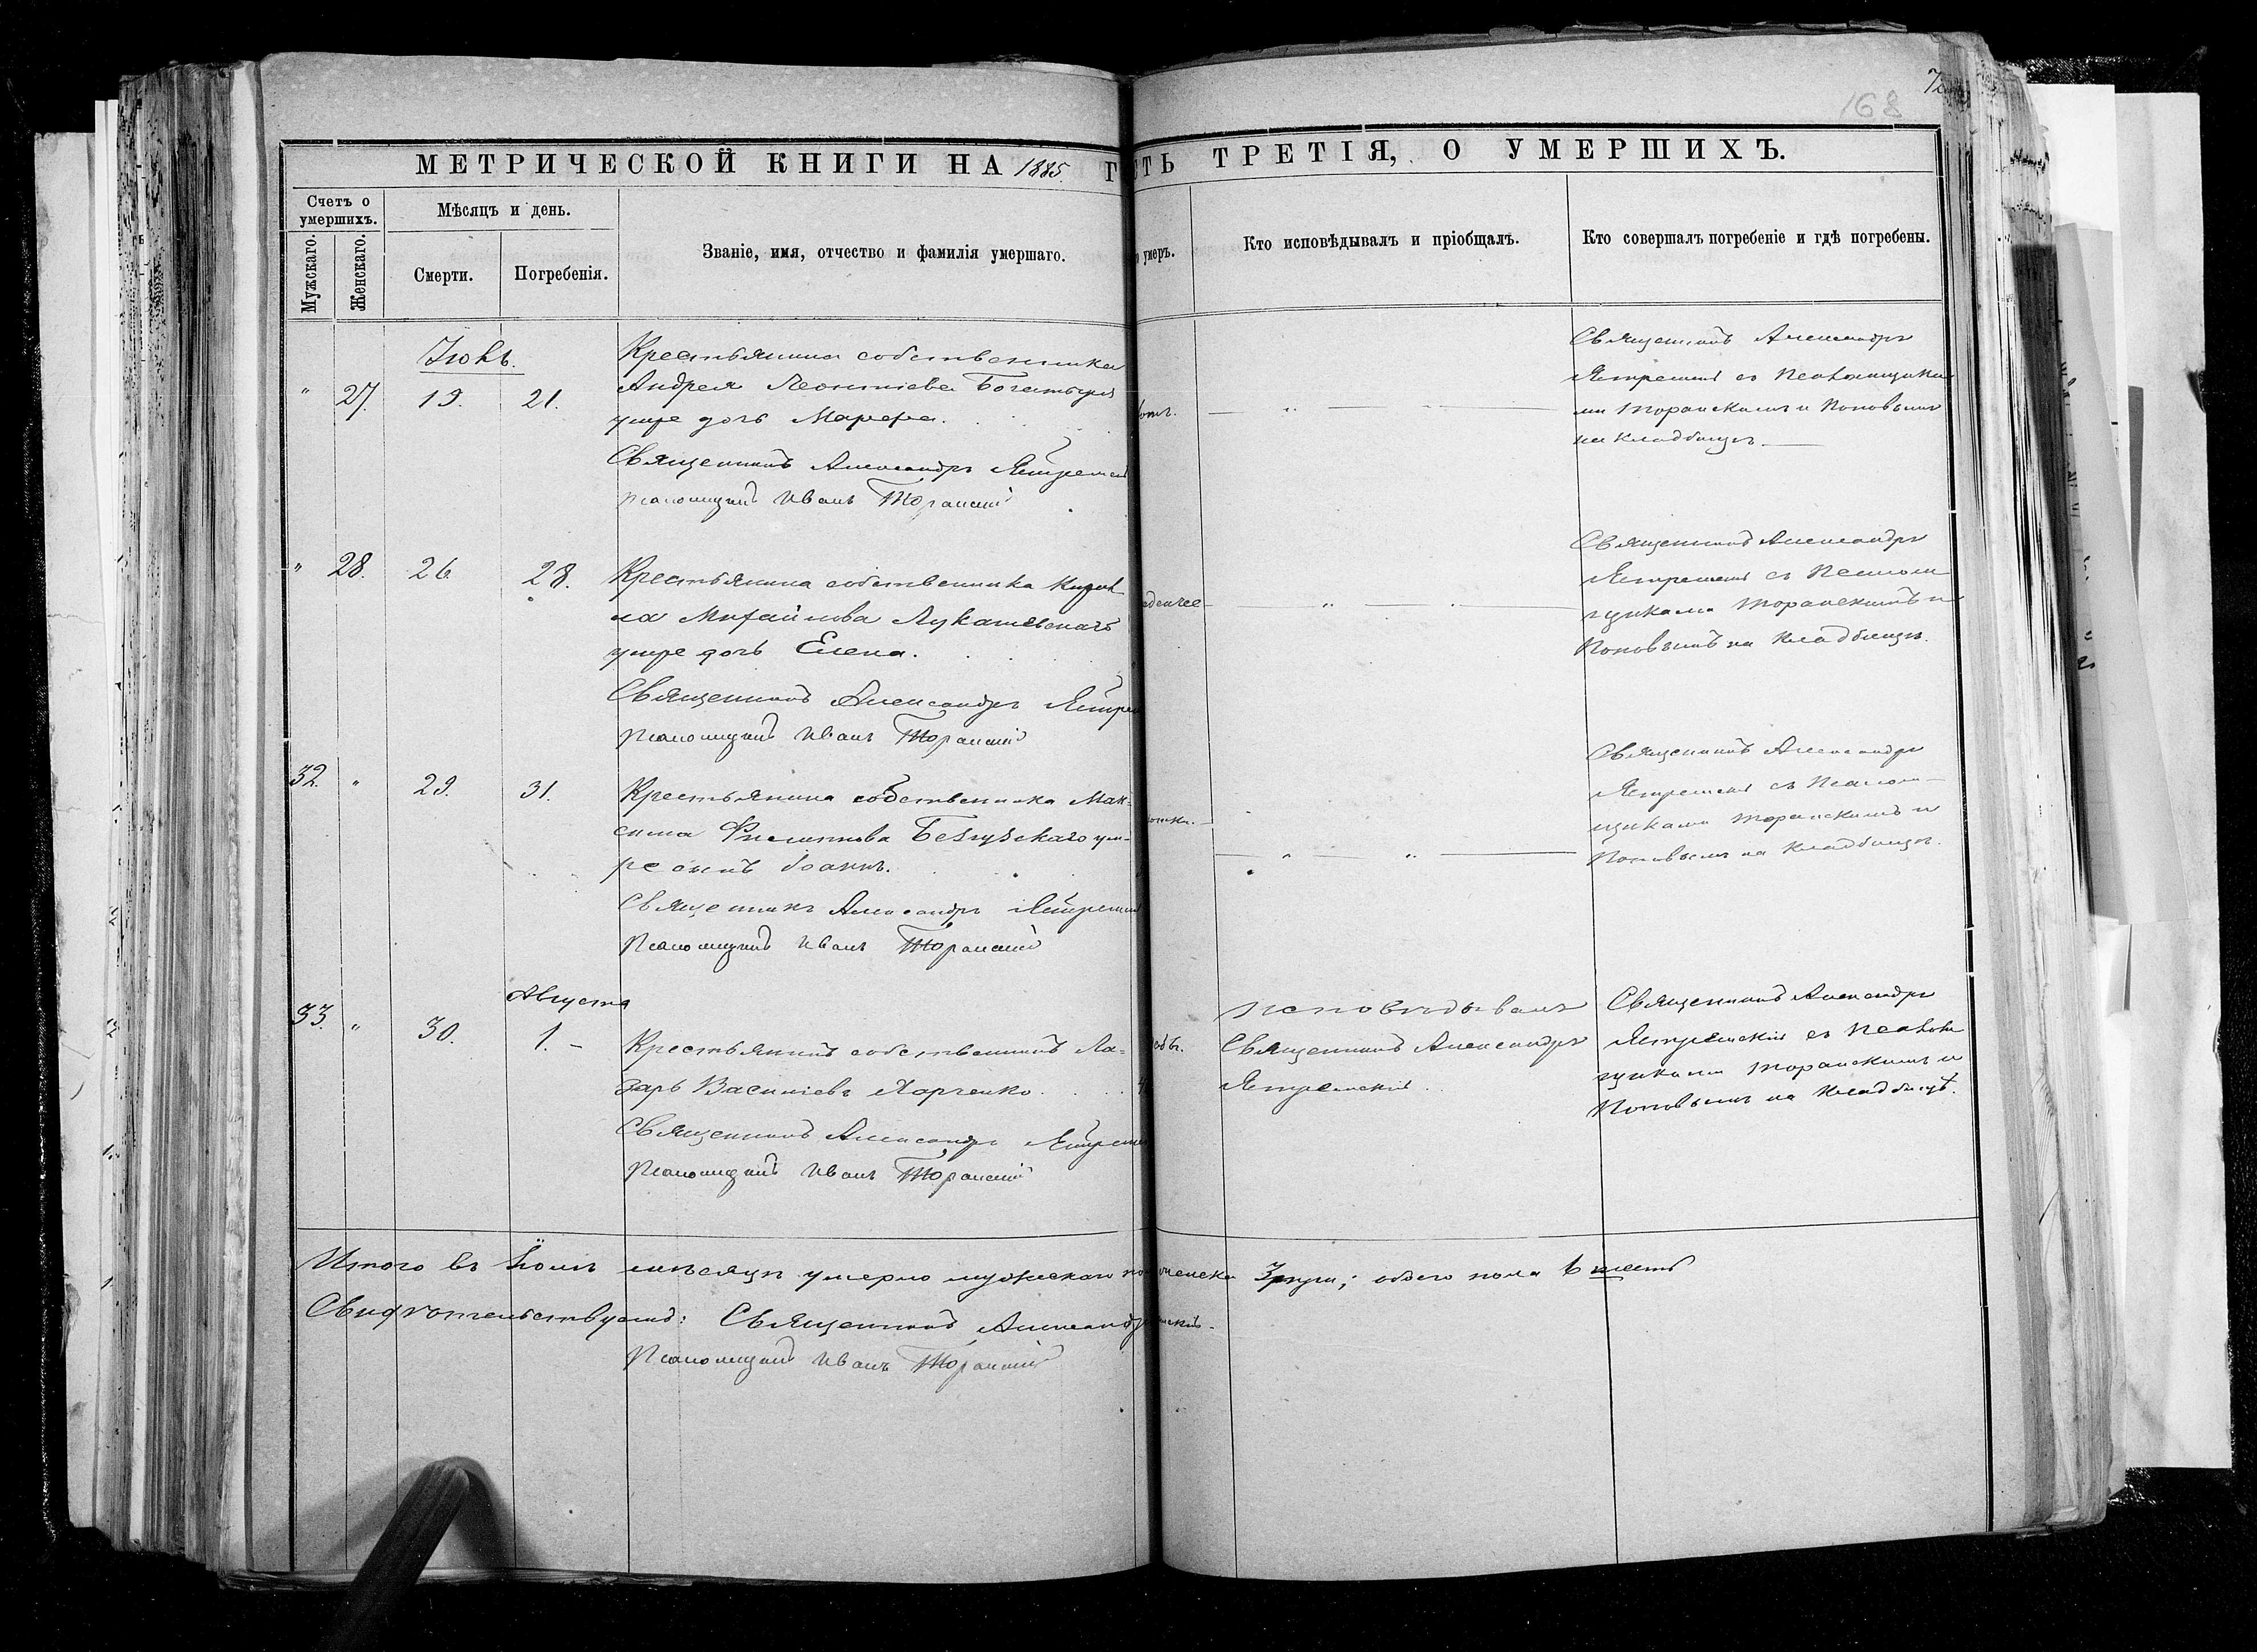 168
МЕТРИЧЕСКОЙ КНИГИ НА 1885. Г
СТЬ ТРЕТІЯ, О УМЕРШИХЪ.
Счетъ о умершихъ.
Мужскаго.
Женскаго.
Мѣсяцъ и день.
Смерти.
Погребенія.
Званіе, имя, отчество и фамилія умершаго.
умеръ.
Кто исповѣдывалъ и пріобщалъ.
Кто совершалъ погребеніе и гдѣ погребены.
Іюль.
" 27. 19. 21.
Крестьянина собственника
Андрея Леонтіева
умре дочь Марфа.
Священникъ Александръ
Псаломщикъ Иванъ
Священникъ Александръ
съ Псаломщика
ми и Поповымъ
на кладбищѣ.
" 28. 26. 28.
Крестьянина собственника Кирил
ла Михайлова
умре дочь Елена.
Священникъ Александръ
Псаломщикъ Иванъ
Священникъ Александръ
съ Псалом
щиками и
Поповымъ на кладбищѣ.
32. " 29. 31.
Крестьянина собственника Мак-
сима Филиппова ум-
ре сынъ Іоаннъ.
Священникъ Александръ
Псаломщикъ Иванъ
Священникъ Александръ
съ Псалом-
щиками и
Поповымъ на кладбищѣ.
Августа
33. " 30. 1. -
Крестьянинъ собственникъ Ла-
зарь Васильевъ Харченко
Священникъ Александръ
Псаломщикъ Иванъ
исповѣдывалъ
Священникъ Александръ
Ястремскій
Священникъ Александръ
Ястремскій съ Псалом
щиками и
Поповымъ на кладбищѣ.
Итого въ Іюлѣ мѣсяцѣ умерло мужескаго
3 три; обоего пола 6 шесть
Свидѣтельствуемъ: Священникъ Александръ
Псаломщикъ Иванъ